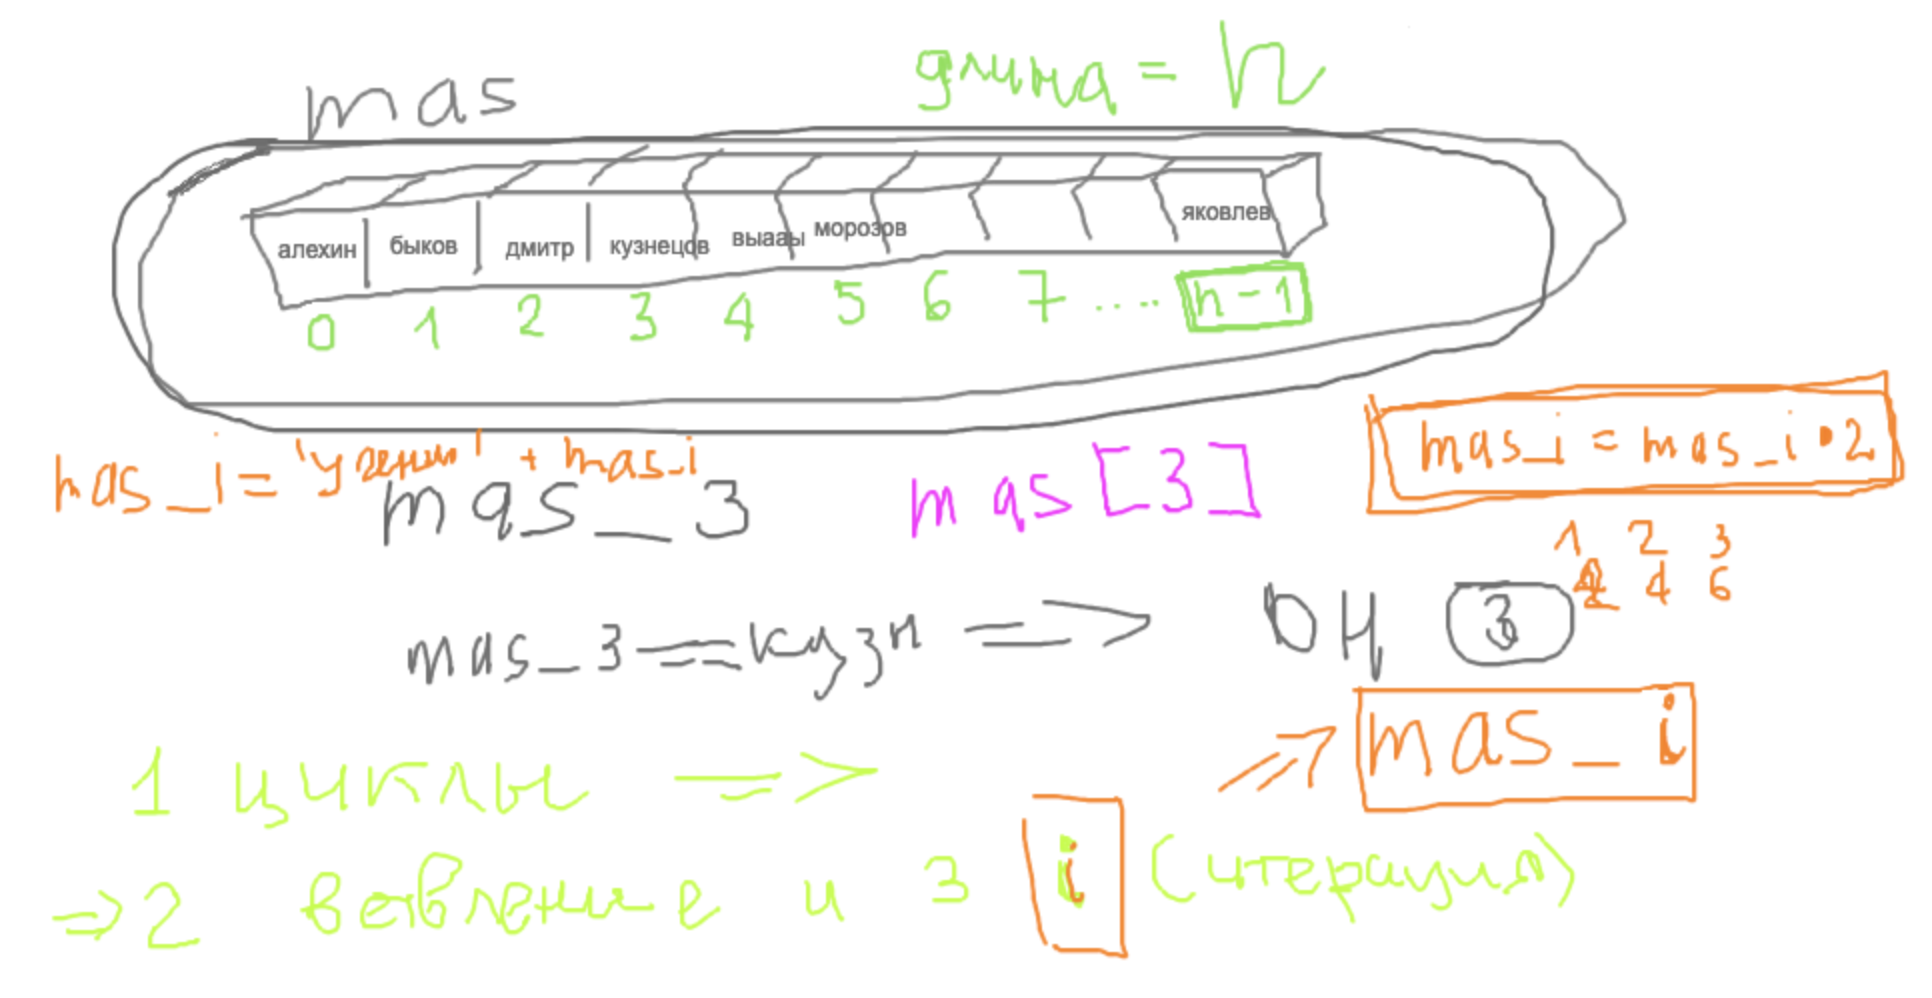 mas
длина = n
алехин быков дмитр кузнецов выааы морозов яковлев
0 1 2 3 4 5 6 7 ..... n-1
mas_i = 'ученик' + mas_i
mas_i = mas_i • 2
mas_3
mas[3]
1 2 3
2 4 6
mas_3 == кузн => ОЦ 3
1 циклы =>
=> mas_i
=> 2 ветвление и 3 i (итерация)